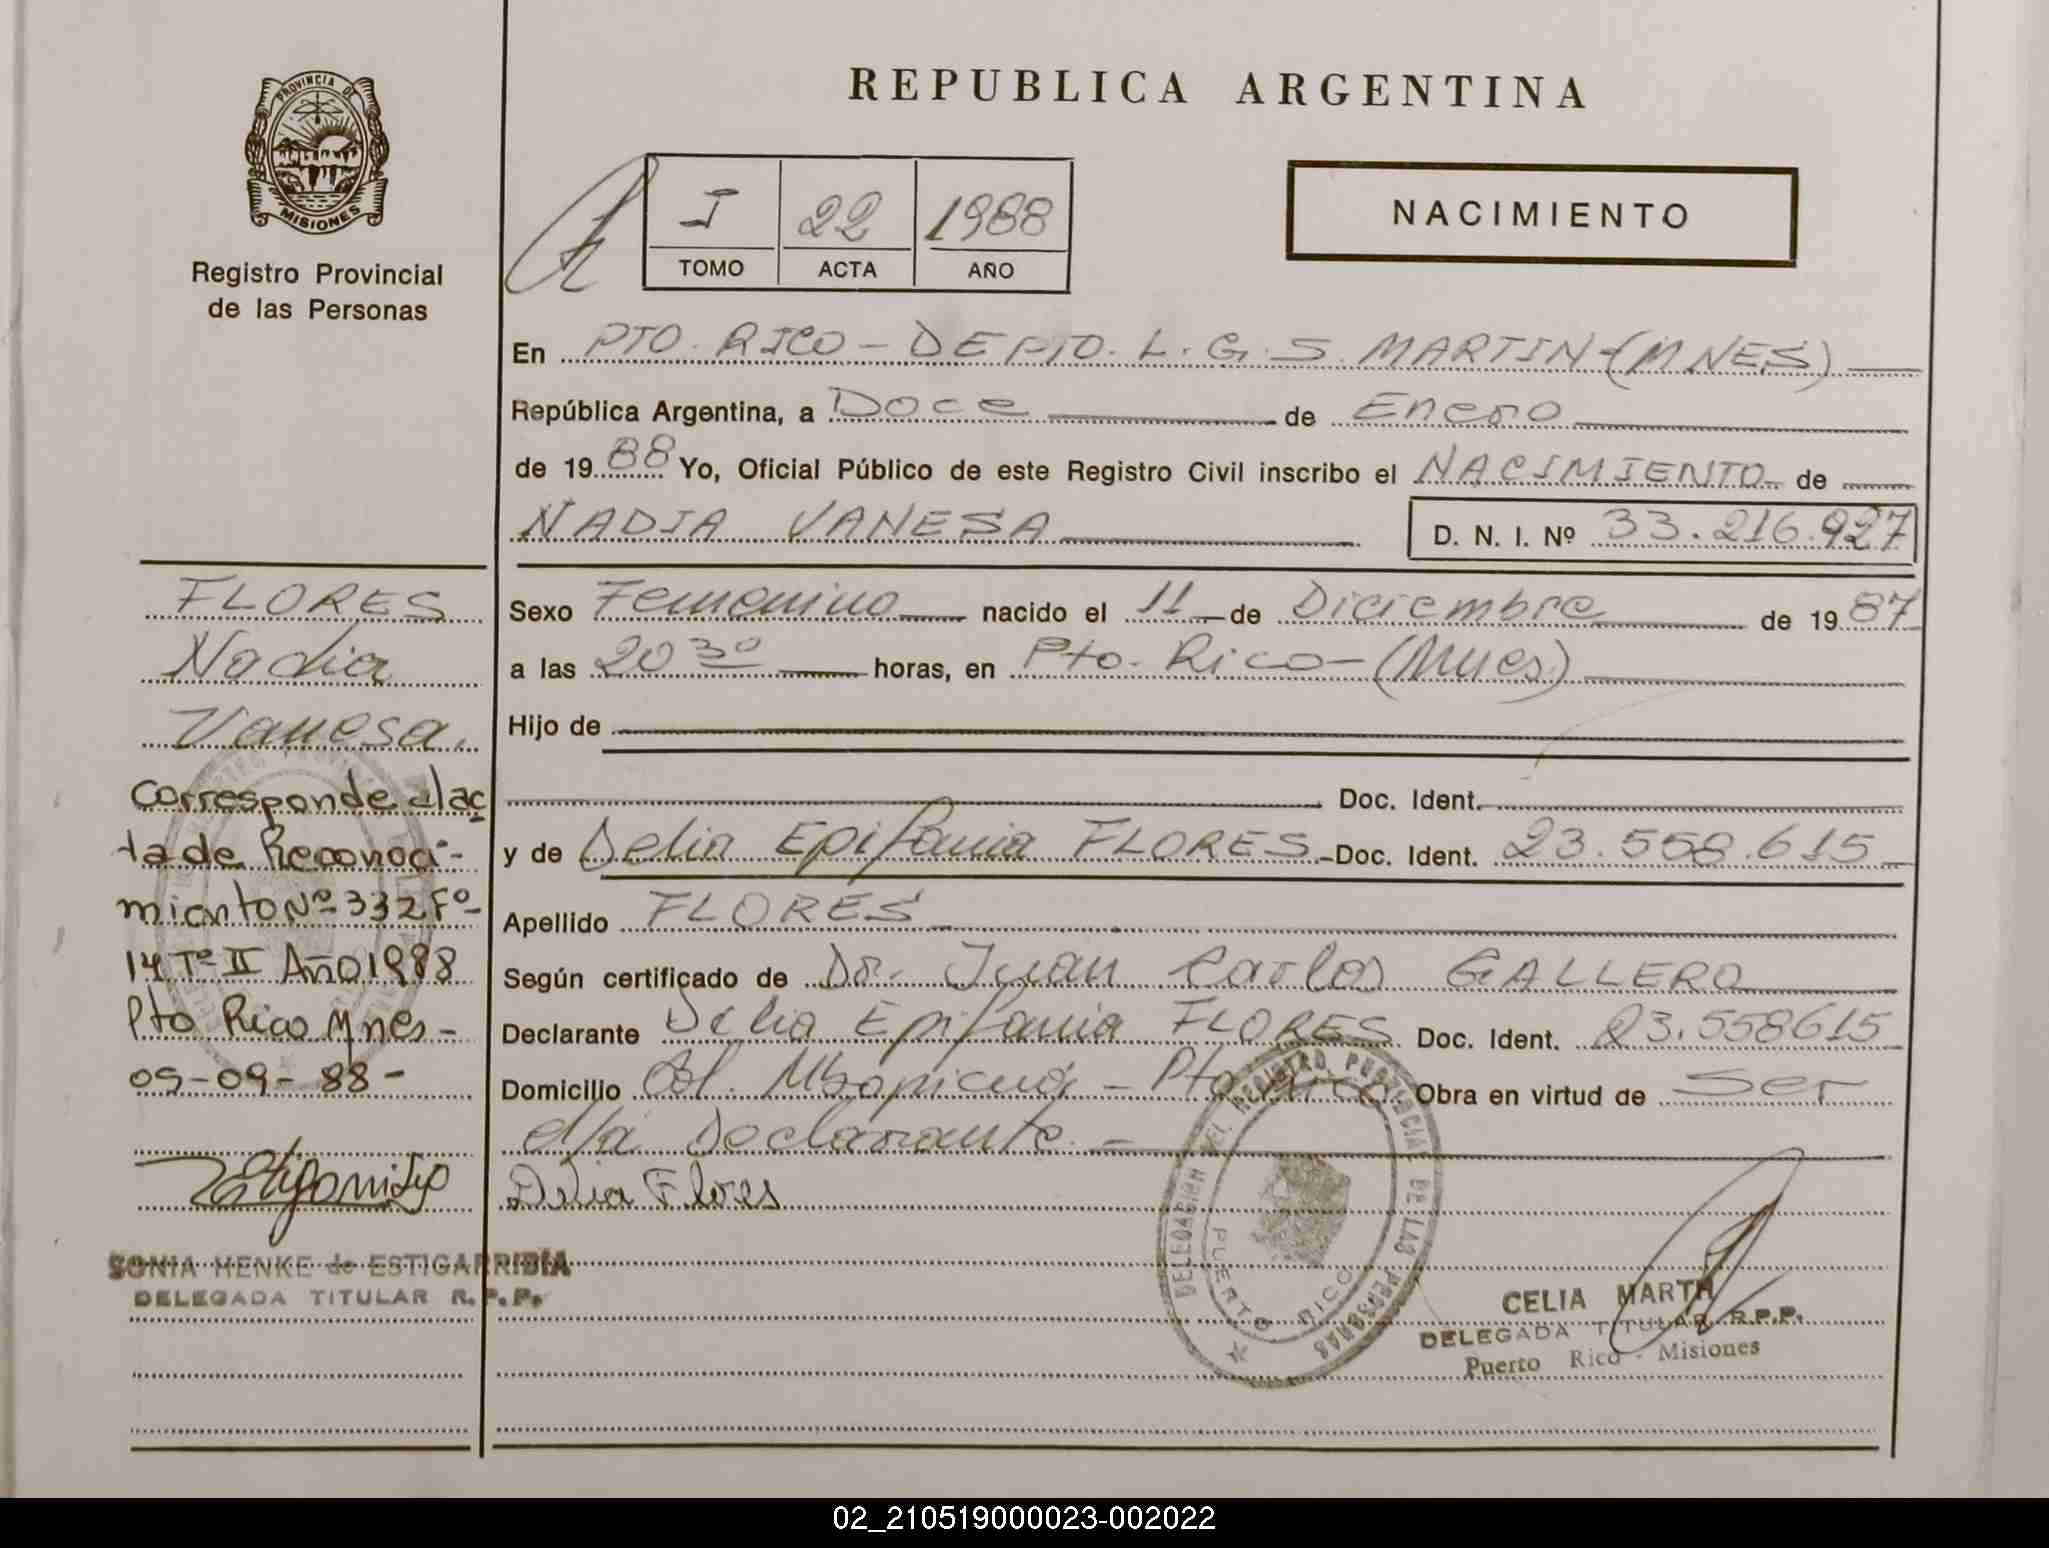 REPUBLICA ARGENTINA
PROVINCIA DE
MISIONES
Registro Provincial
de las Personas
I 22 1988
TOMO ACTA AÑO
NACIMIENTO
En PTO. RICO - DEPTO. L. G. S. MARTIN - (MNES)
República Argentina, a Doce de Enero
de 1988 Yo, Oficial Público de este Registro Civil inscribo el NACIMIENTO de
NADIA VANESA D. N. I. Nº 33.216.927
Sexo Femenino nacido el 11 de Diciembre de 1987
a las 20 30 horas, en Pto. Rico - (Mnes)
Hijo de
Doc. Ident.
y de Delia Epifania FLORES - Doc. Ident. 23.558.615
Apellido FLORES
Según certificado de Dr. Juan Carlos GALLERO
Declarante Delia Epifania FLORES Doc. Ident. 23.558615
Domicilio Col. Mbopicuá - Pto. Rico Obra en virtud de Ser
d/a Declarante. -
Delia Flores
DELEGACION DEL REGISTRO PROVINCIAL DE LAS PERSONAS
PUERTO RICO
CELIA MARTH
DELEGADA TITULAR R.P.P.
Puerto Rico - Misiones
FLORES
Nadia
Vanesa.
Corresponde al ac
ta de Reconoci-
miento Nº 332 Fº-
14 Tº II Año 1988
Pto Rico Mnes -
09-09-88-
SONIA HENKE de ESTIGARRIBIA
DELEGADA TITULAR R.P.P.
02_210519000023-002022